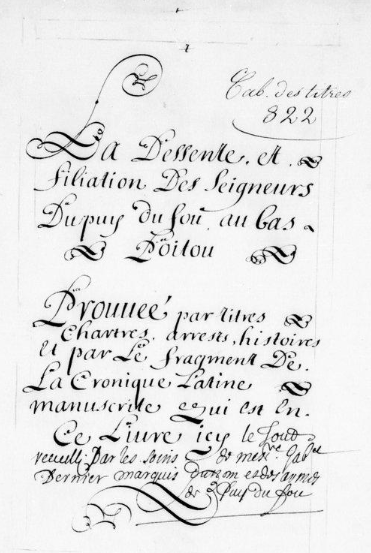 Cab. des titres
822
La Dessente, et
filiation Des Seigneurs
Dupuy du fou, au bas
Poitou
Prouueé par titres
Chartres, arrests, histoires
Et par Le fragment De
La Cronique Latine
manuscrite qui est En
Ce Liure icy le tout
recueilly Par les soins de mesre Gabel
Dernier marquis et des armes
de Puy du fou